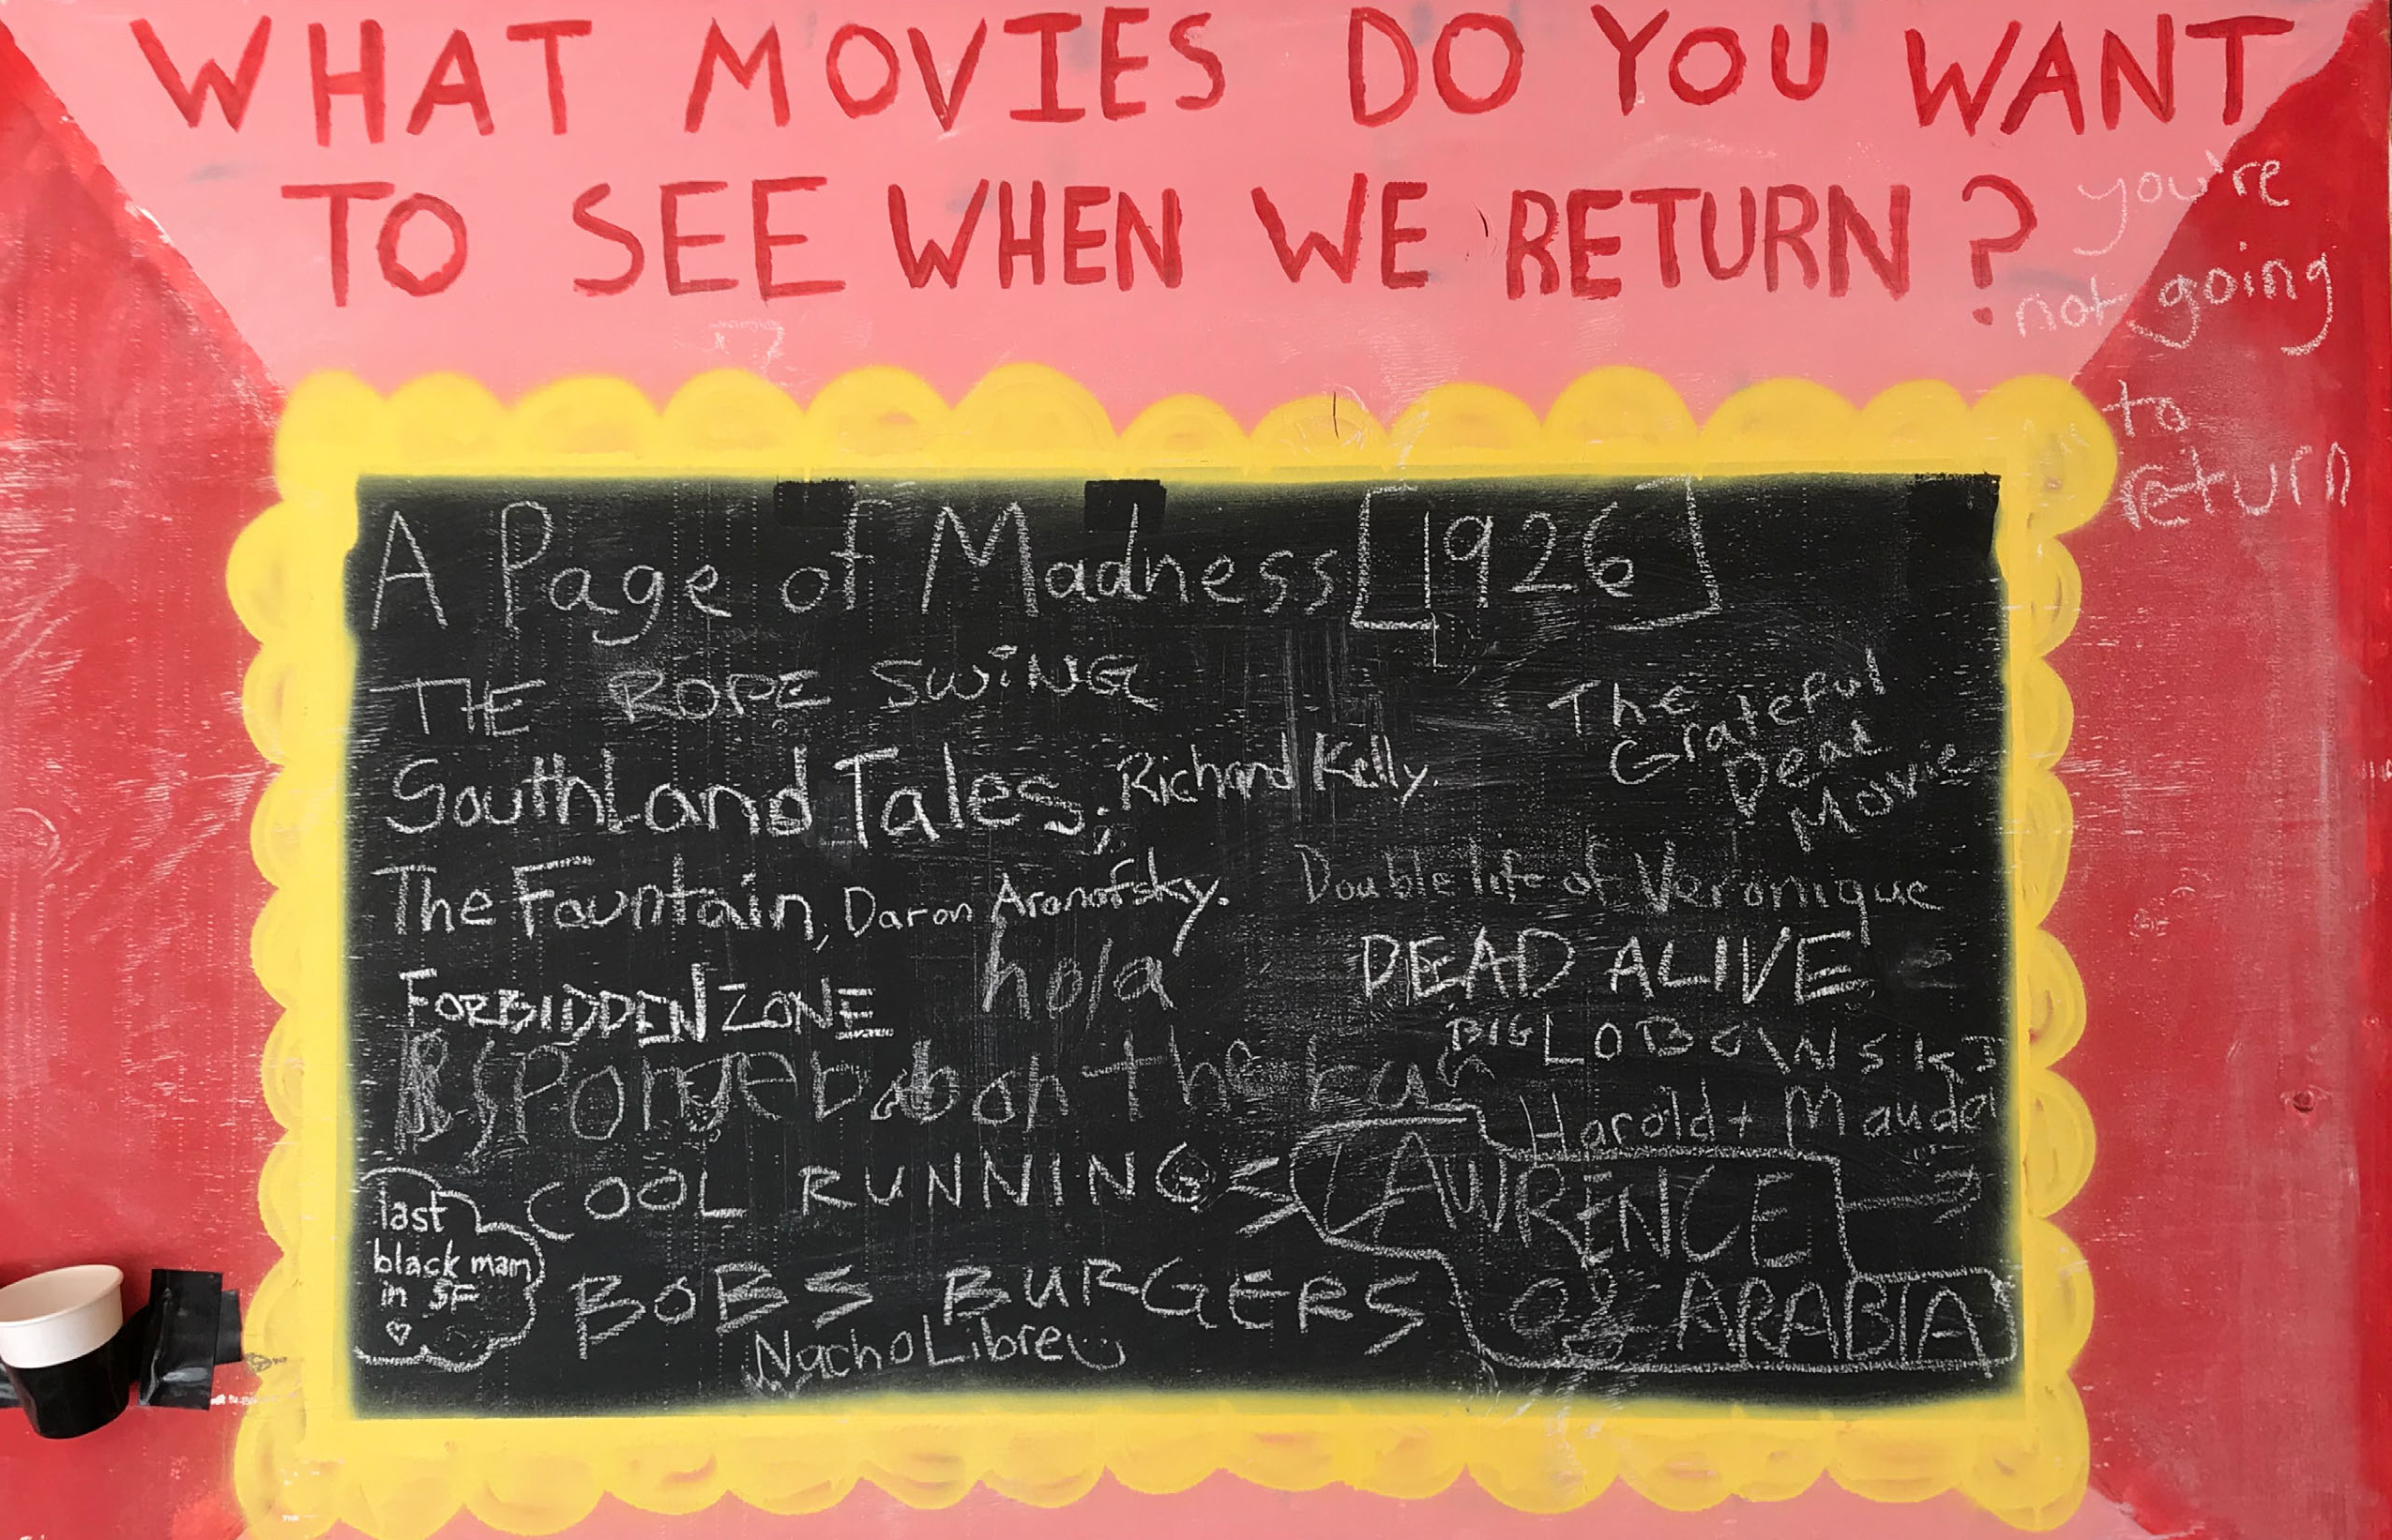 WHAT MOVIES DO YOU WANT
TO SEE WHEN WE RETURN?
you're
not going
to
return
A Page of Madness [1926]
THE ROPE SWING
The
Grateful
Dead
Movie
SouthLand Tales, Richard Kelly.
The Fountain, Daron Aronofsky.
Double life of Veronique
hola
DEAD ALIVE
FORBIDDEN ZONE
BIG LOBOWSKI
Spongebob on the run
Harold + Maude
COOL RUNNING
LAWRENCE
OF ARABIA
last
black man
in SF
BOBS BURGERS
Nacho Libre